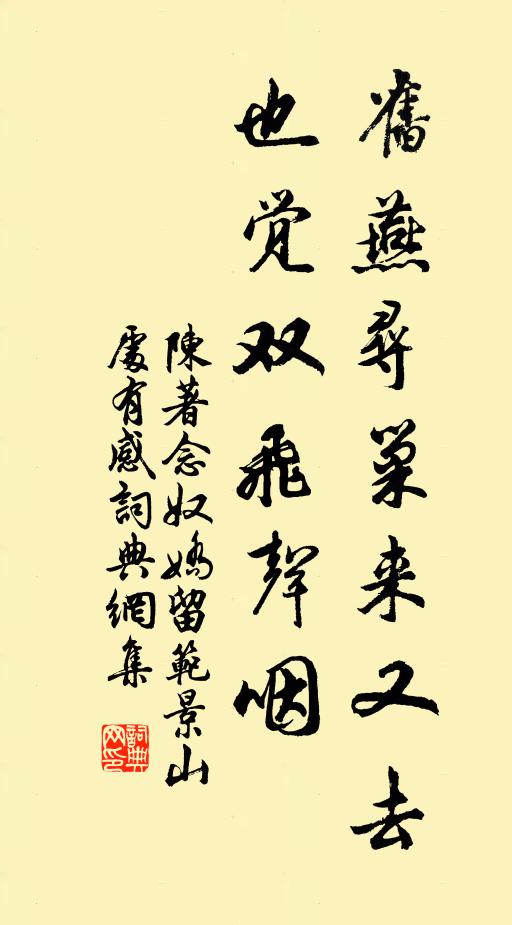 舊燕尋巢来又去
也觉双飛聲咽
陳著念奴嬌留範景山
處有感詞典網集
詞典
网印